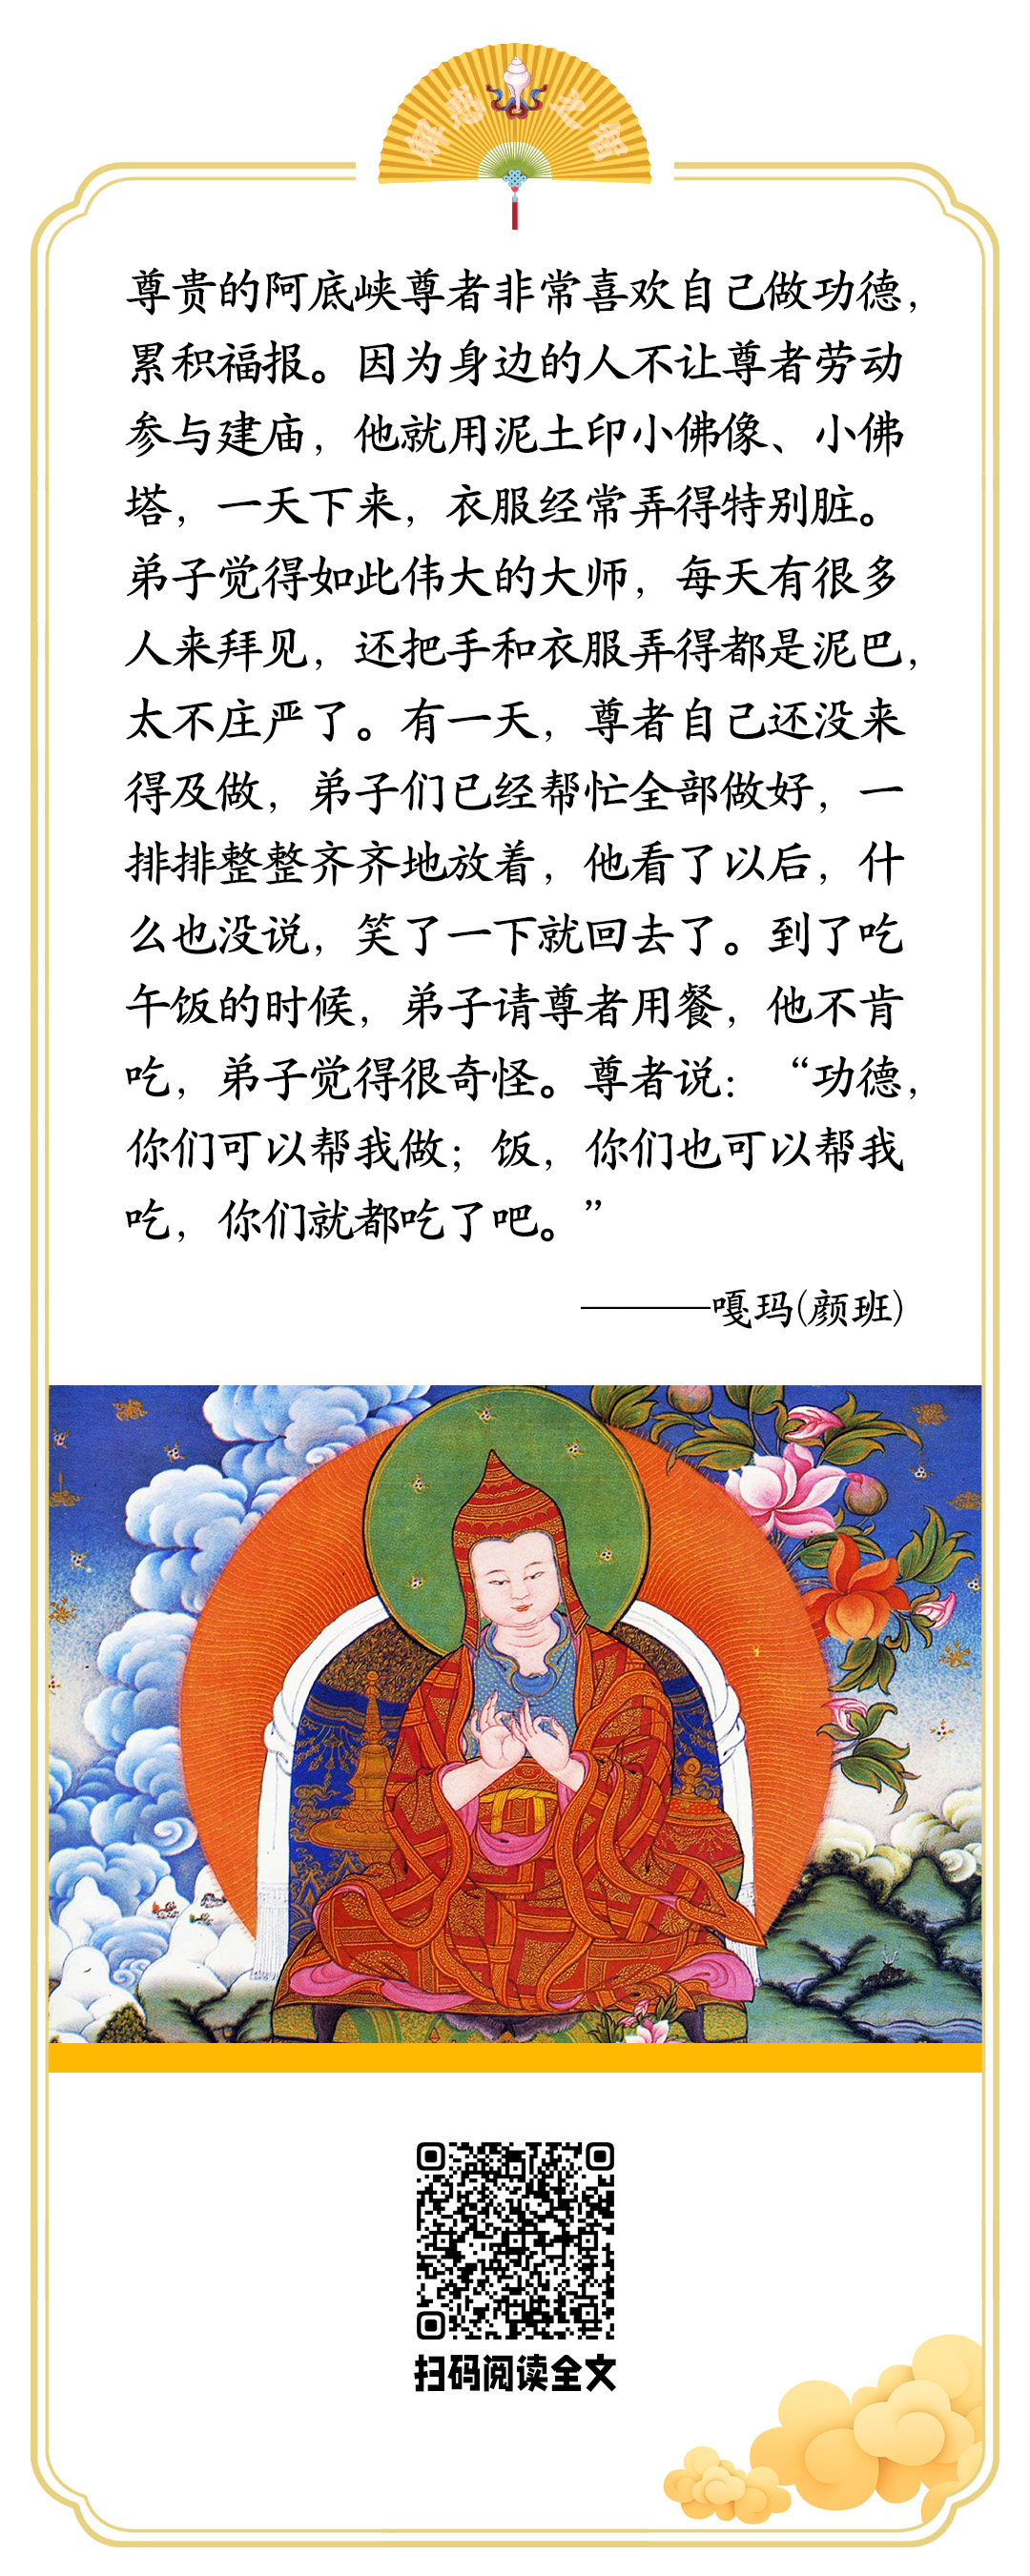 解惑之智
尊贵的阿底峡尊者非常喜欢自己做功德，
累积福报。因为身边的人不让尊者劳动
参与建庙，他就用泥土印小佛像、小佛
塔，一天下来，衣服经常弄得特别脏。
弟子觉得如此伟大的大师，每天有很多
人来拜见，还把手和衣服弄得都是泥巴，
太不庄严了。有一天，尊者自己还没来
得及做，弟子们已经帮忙全部做好，一
排排整整齐齐地放着，他看了以后，什
么也没说，笑了一下就回去了。到了吃
午饭的时候，弟子请尊者用餐，他不肯
吃，弟子觉得很奇怪。尊者说：“功德，
你们可以帮我做；饭，你们也可以帮我
吃，你们就都吃了吧。”
———嘎玛(颜班)
扫码阅读全文